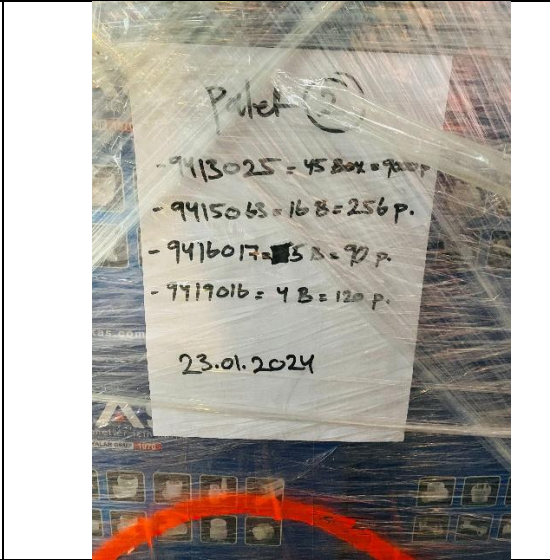 Palet 2
-9413025 = 45 Box = 900 p
- 9415063 = 16 B = 256 p.
- 9416017 = 5 B = 90 p.
- 9419016 = 4 B = 120 p.
23.01.2024
as.com
1970